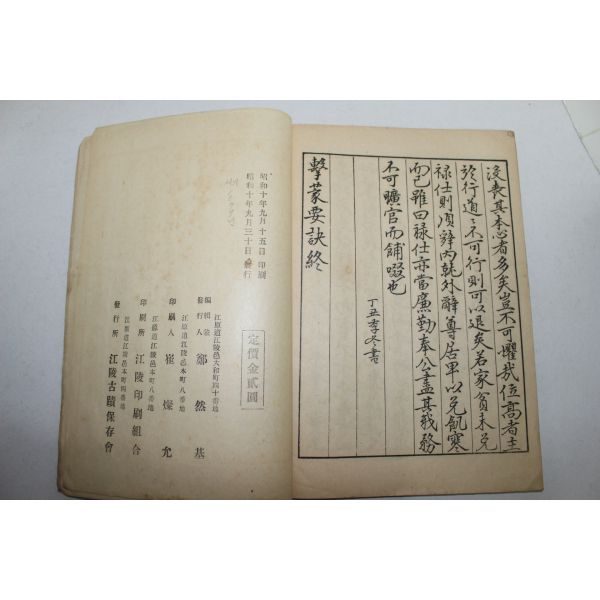 沒喪其本心者多矣豈不可懼哉位高者主
於行道道不可行則可以退矣若家貧未免
祿仕則須辭內就外辭尊居卑以免飢寒
而已雖曰祿仕亦當廉勤奉公盡其職務
不可曠官而餔啜也
丁丑季冬書
擊蒙要訣終
昭和十年九月十五日印刷
昭和十年九月三十日發行
定價金貳圓
江原道江陵邑大和町四十番地
編輯兼
發行人 鄭然基
江原道江陵邑本町八番地
印刷人 崔燦允
江原道江陵邑本町八番地
印刷所 江陵印刷組合
江原道江陵邑本町四番地
發行所 江陵古蹟保存會